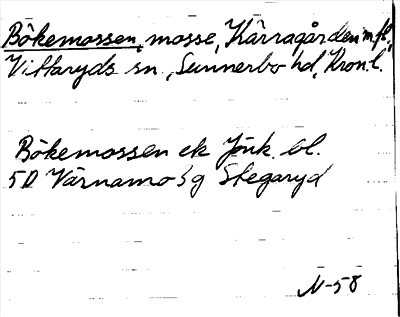 Bökemossen, mosse, Kärragården m.fl.,
Vittaryds sn, Sunnerbo hd, Kron.l.
Bökemossen ek Jönk. bl.
5D Värnamo 5g Stegaryd
N-58